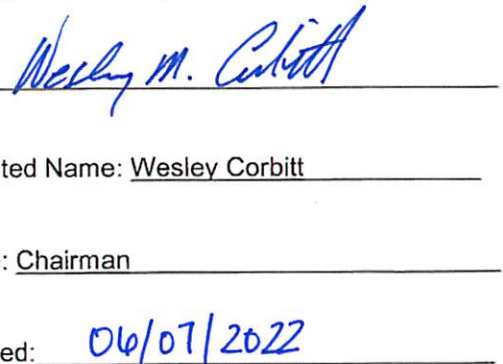 Wesley M. Corbitt
ted Name: Wesley Corbitt
: Chairman
ed: 06/07/2022